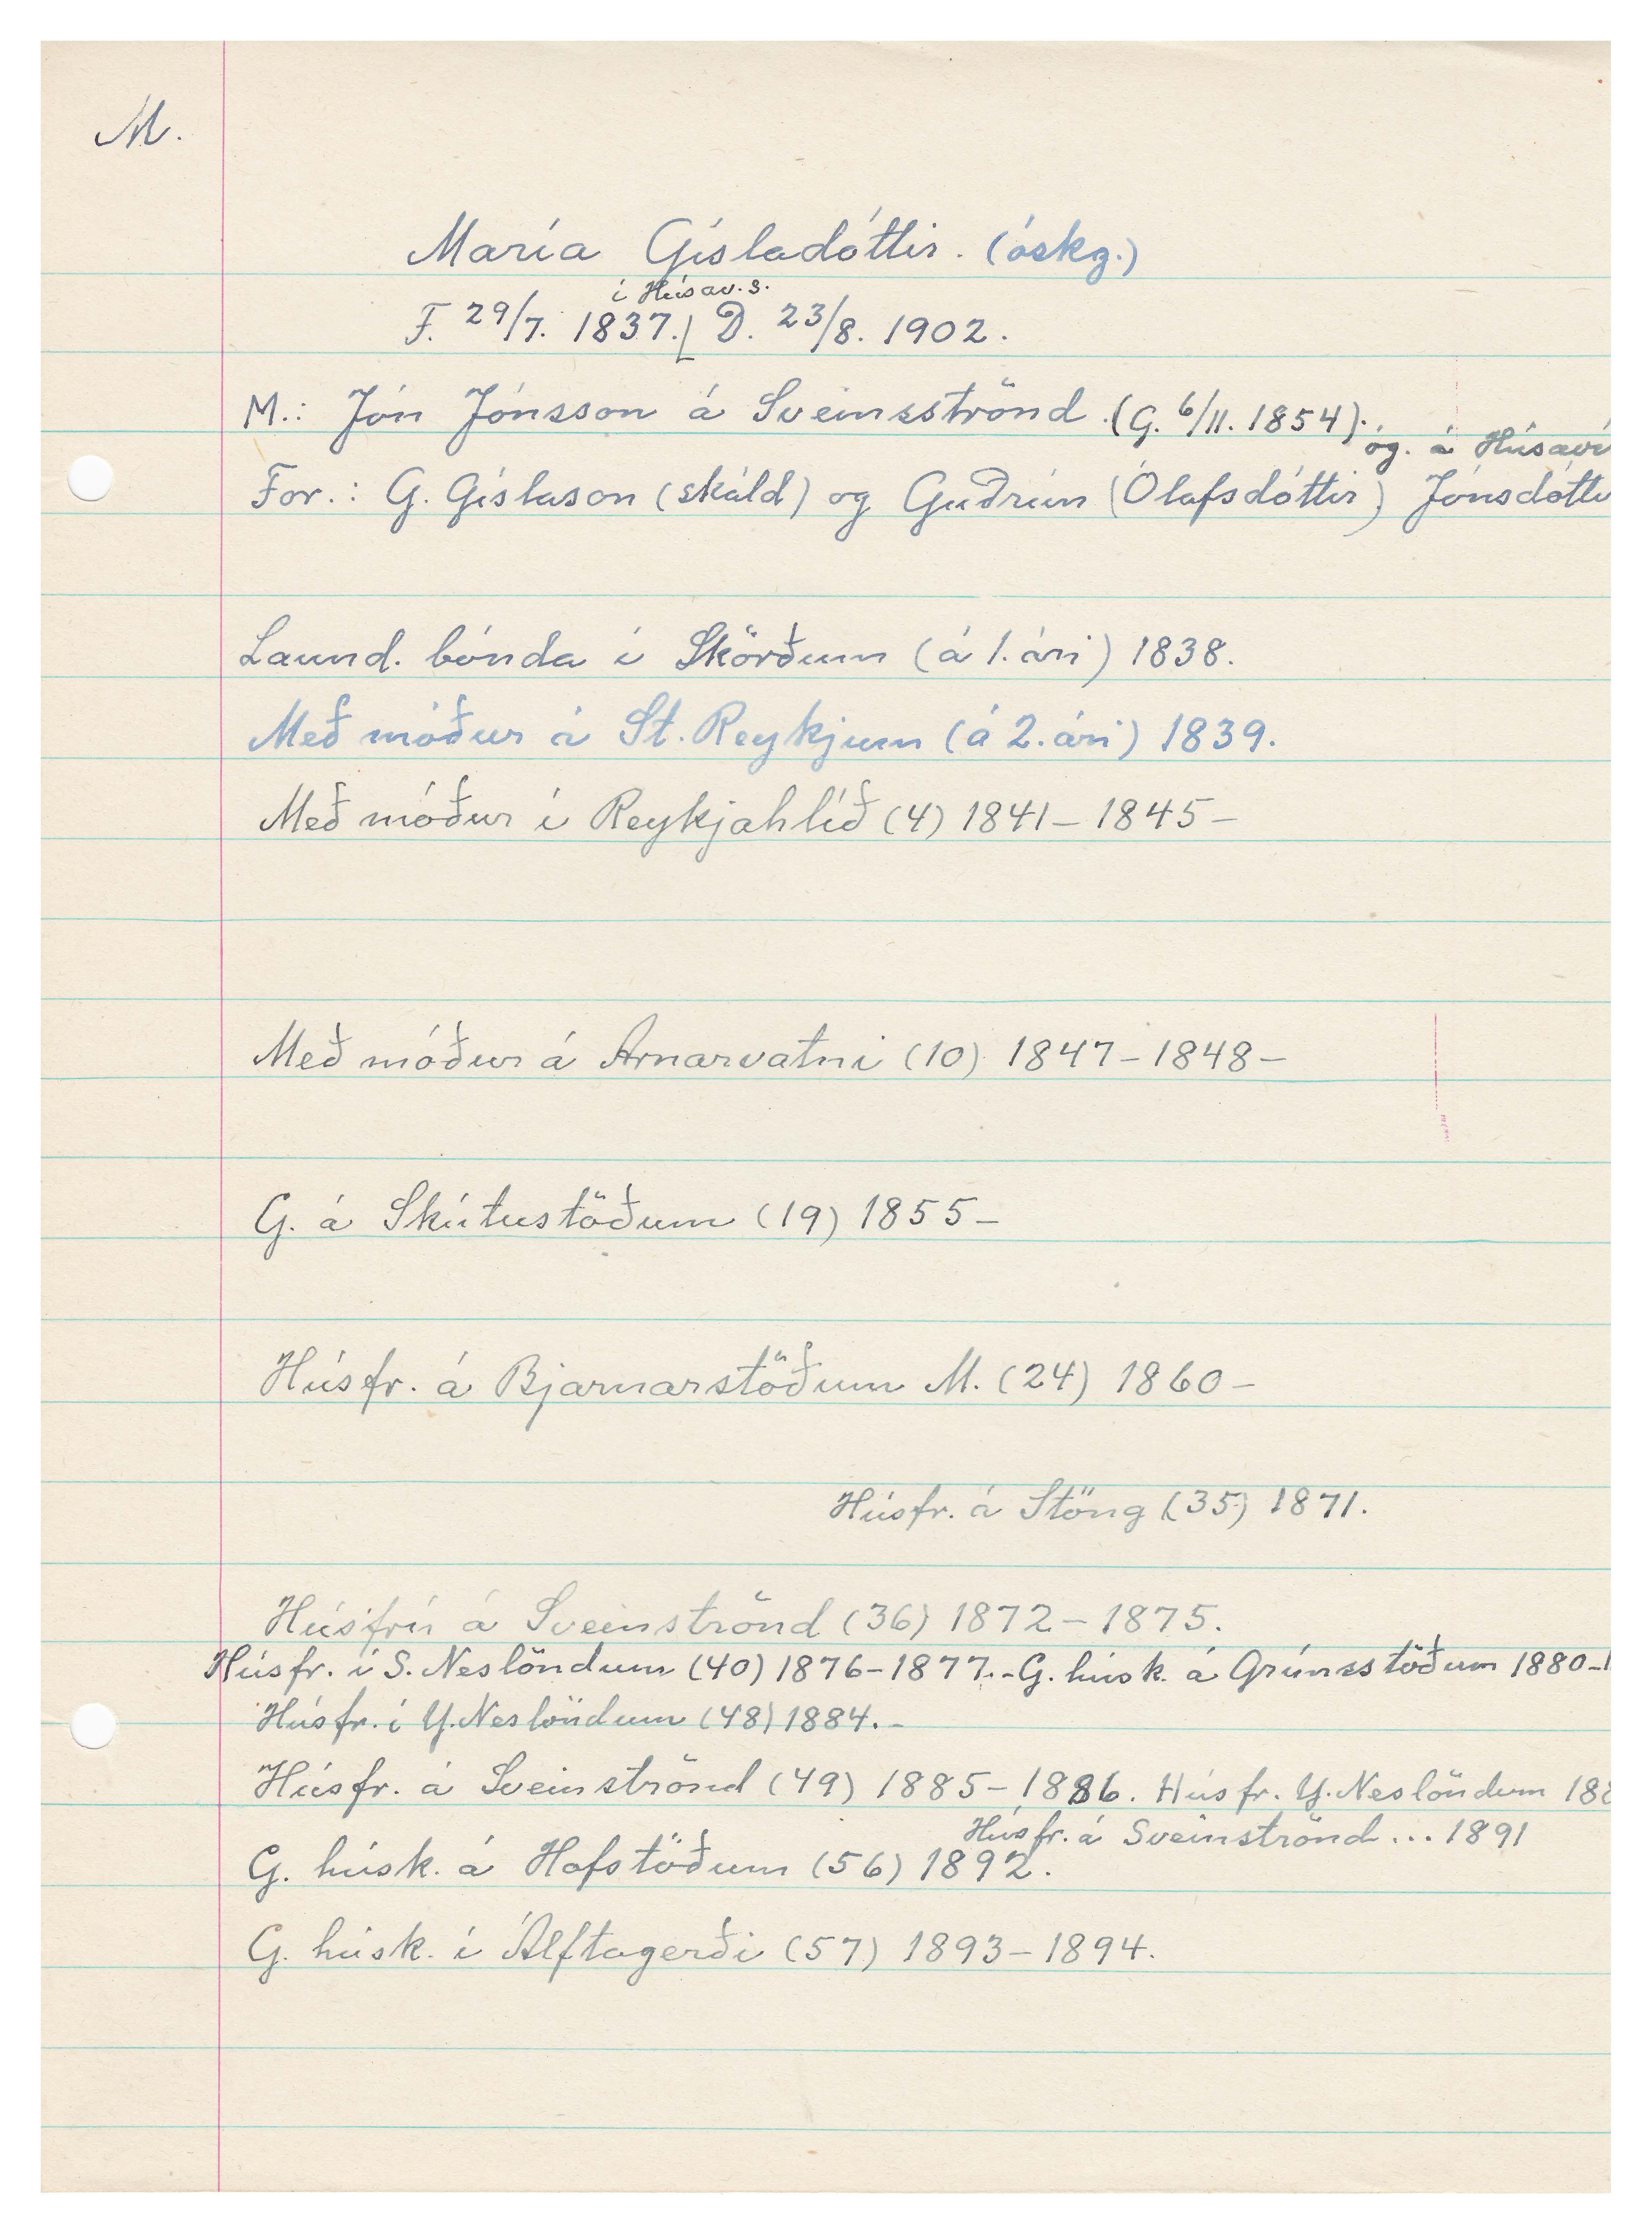 M.
María Gísladóttir. (óskg.)
í Húsav.s.
F. 29/7. 1837. D. 23/8. 1902.
M.: Jón Jónsson á Sveinsströnd. (G. 6/11. 1854).
óg. á Húsaví
For.: G. Gíslason (skáld) og Guðrún (Ólafsdóttir) Jónsdótti
Laund. bónda í Skörðum (á 1. ári) 1838.
Með móður á St. Reykjum (á 2. ári) 1839.
Með móður í Reykjahlíð (4) 1841-1845-
Með móður á Arnarvatni (10) 1847-1848-
G. á Skútustöðum (19) 1855-
Húsfr. á Bjarnarstöðum M. (24) 1860-
Húsfr. á Stöng (35) 1871.
Húsfrú á Sveinströnd (36) 1872-1875.
Húsfr. í S. Neslöndum (40) 1876-1877.-G. húsk. á Grímsstöðum 1880-1
Húsfr. í Y. Neslöndum (48) 1884.-
Húsfr. á Sveinströnd (49) 1885-1886. Húsfr. Y. Neslöndum 188
Húsfr. á Sveinströnd... 1891
G. húsk. á Hofstöðum (56) 1892.
G. húsk. í Álftagerði (57) 1893-1894.